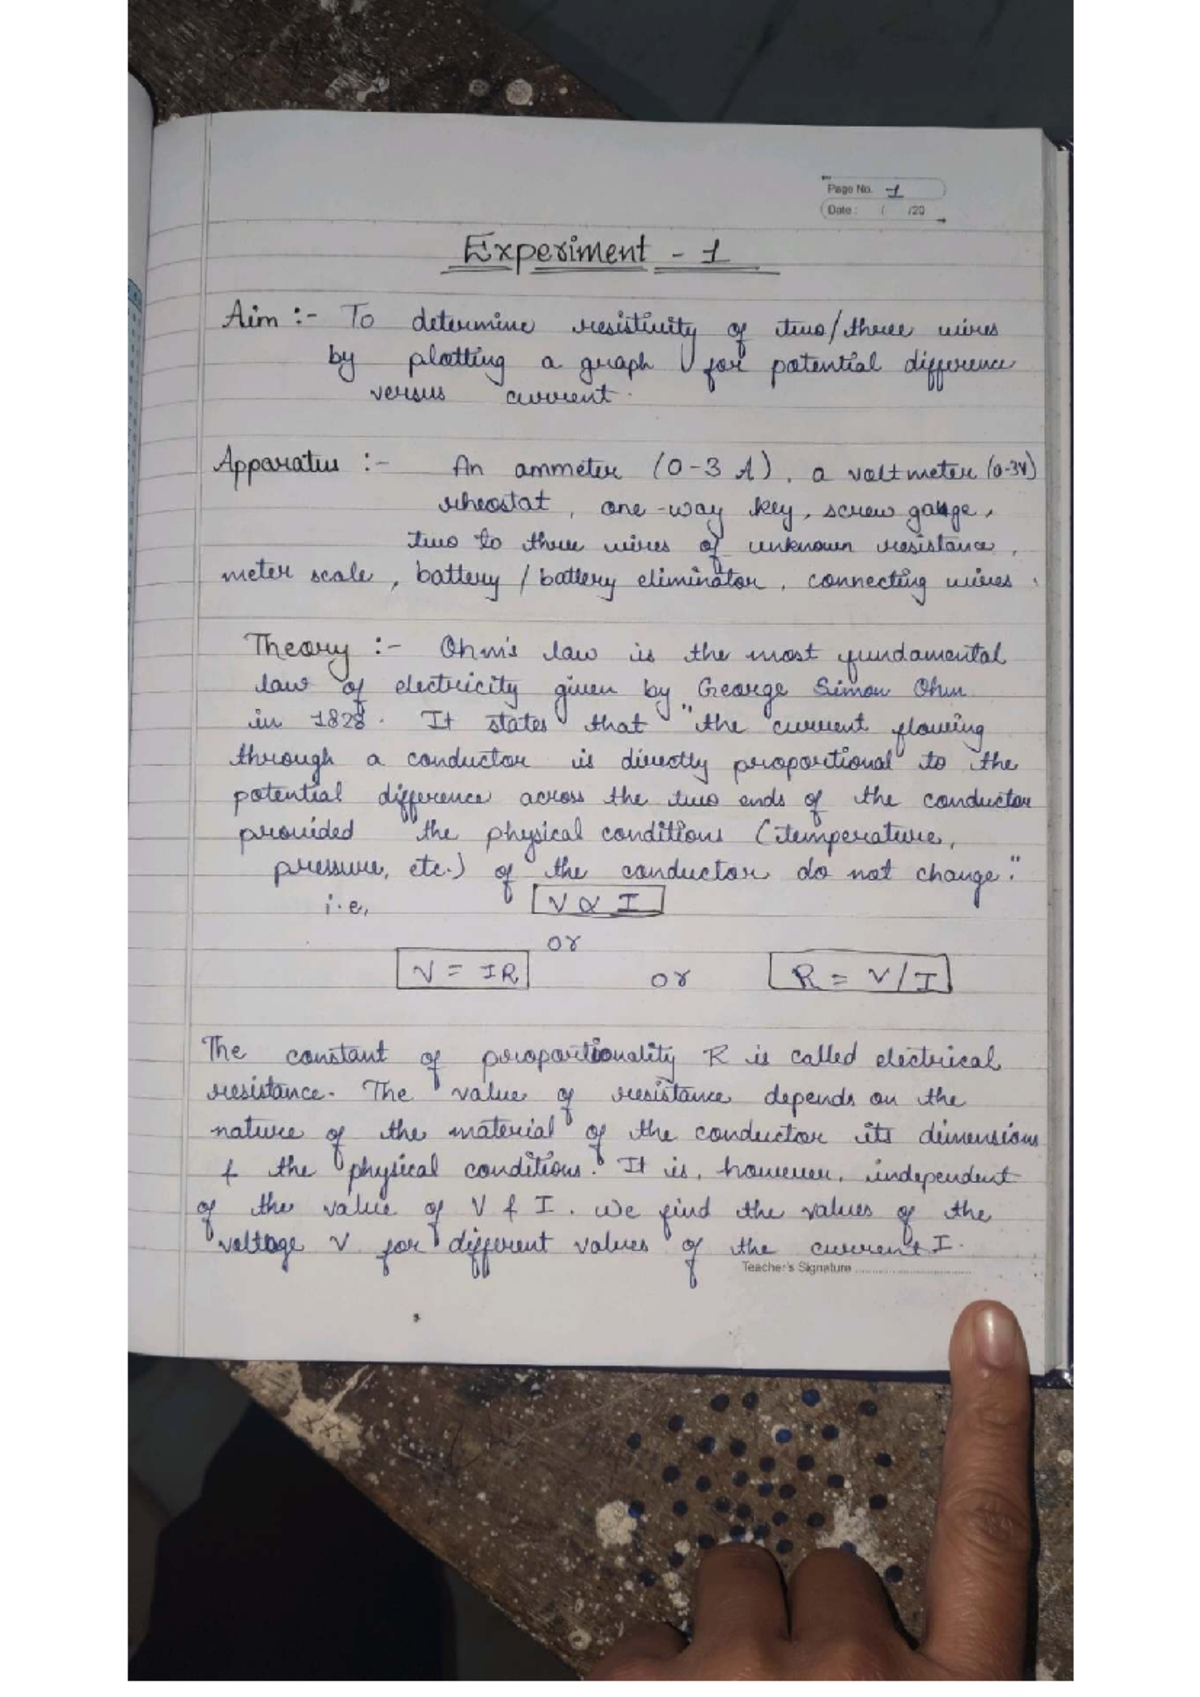 Page No. 1
Date: / /20
Experiment - 1
Aim :- To determine resistivity of two/three wires
by plotting a graph for potential difference
versus current.
Apparatus :- An ammeter (0-3 A), a voltmeter (0-3V)
rheostat, one-way key, screw gauge,
two to three wires of unknown resistance,
meter scale, battery / battery eliminator, connecting wires.
Theory :- Ohm's law is the most fundamental
law of electricity given by George Simon Ohm
in 1828. It states that "the current flowing
through a conductor is directly proportional to the
potential difference across the two ends of the conductor
provided the physical conditions (temperature,
pressure, etc.) of the conductor do not change."
i.e, V ∝ I
or
V = IR or R = V/I
The constant of proportionality R is called electrical
resistance. The value of resistance depends on the
nature of the material of the conductor its dimensions
& the physical conditions. It is, however, independent
of the value of V & I. We find the values of the
voltage V for different values of the current I.
Teacher's Signature ........................